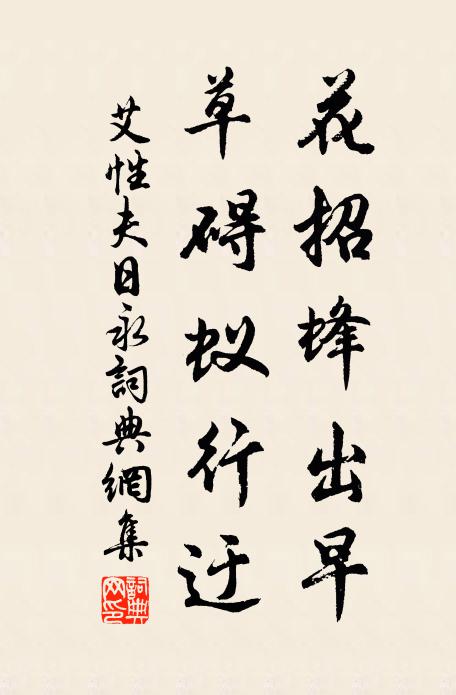 花招蜂出早
草碍蚁行迂
艾性夫日永詞典網集
詞典網印